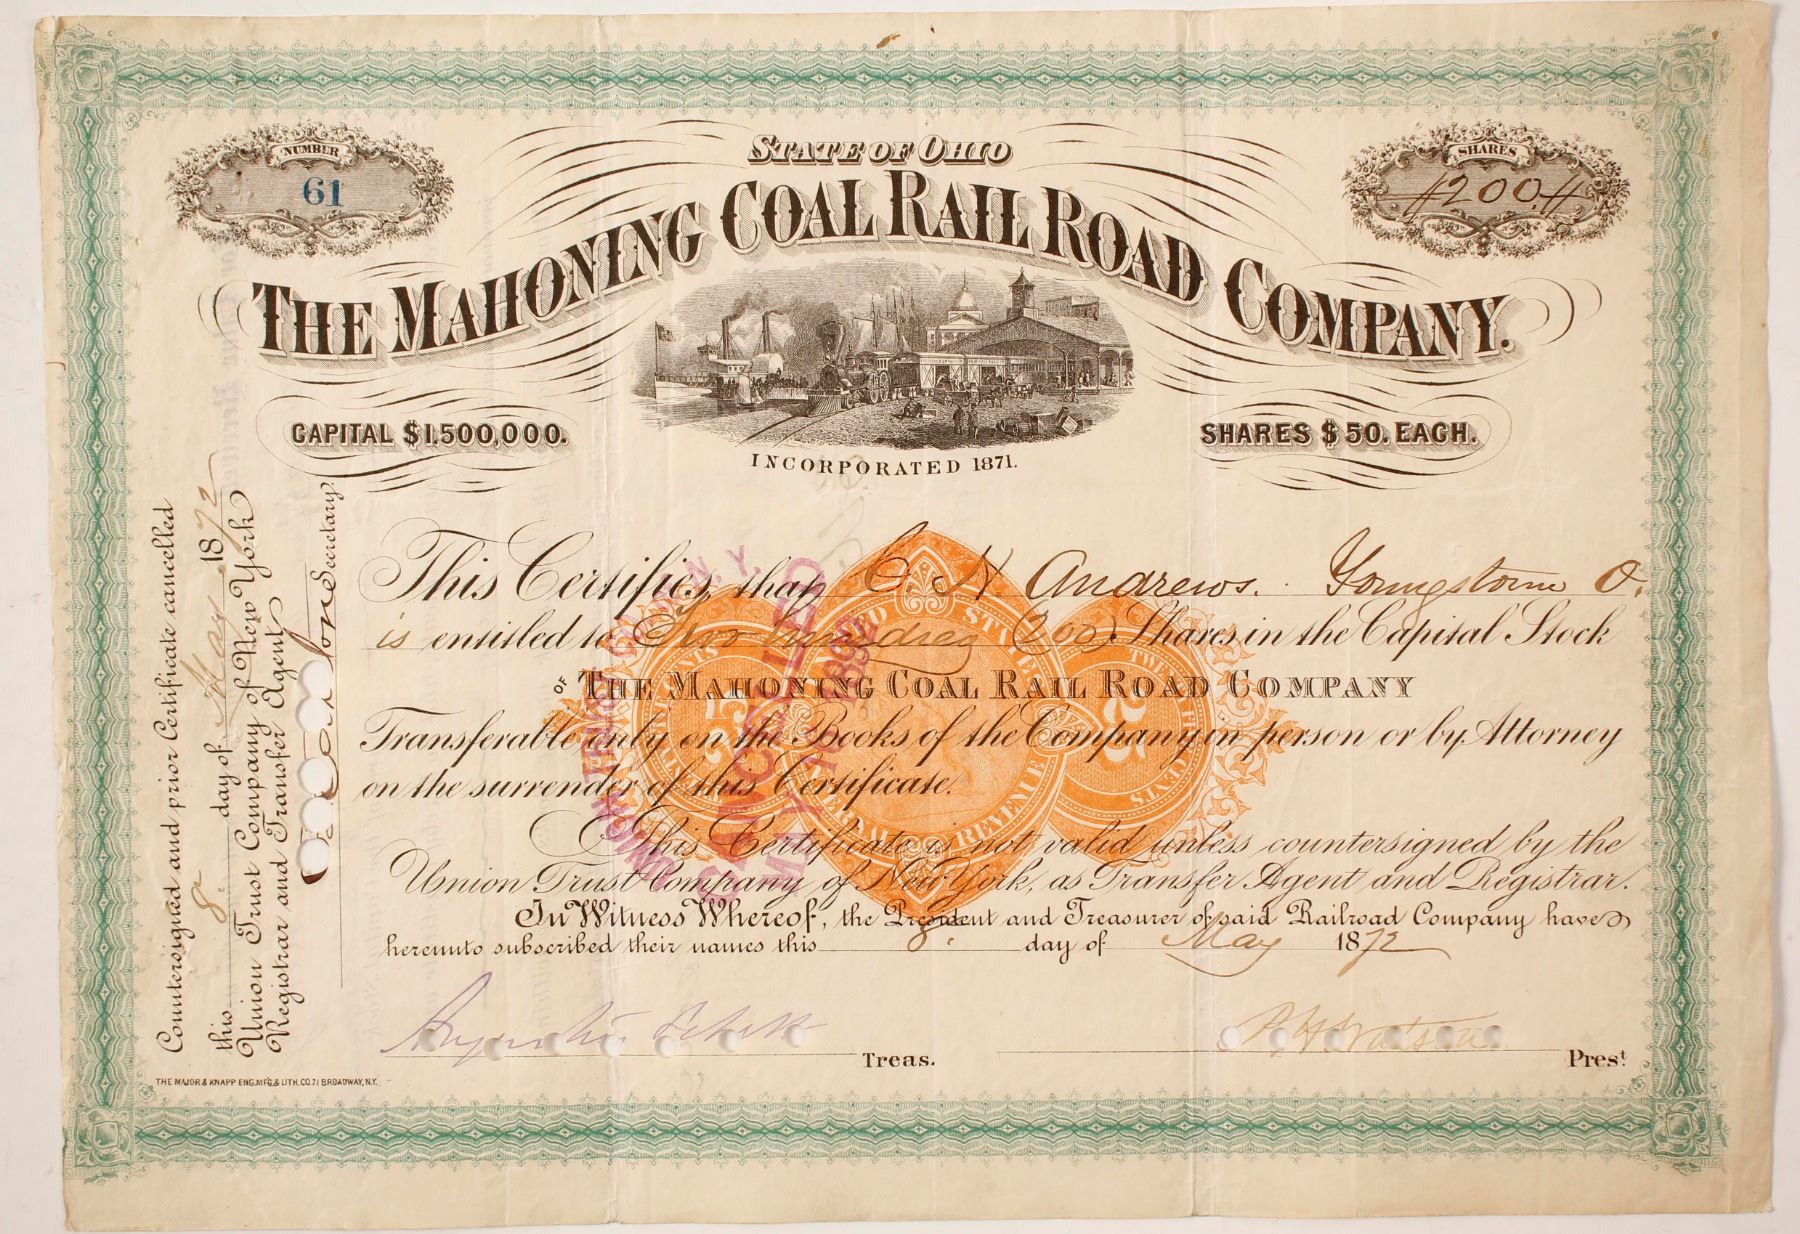 NUMBER
61
STATE OF OHIO
SHARES
#200.#
THE MAHONING COAL RAIL ROAD COMPANY.
CAPITAL $1,500,000.
SHARES $50. EACH.
INCORPORATED 1871.
This Certifies, that C H Andrews. Youngstown O.
is entitled to Two hundred (200) Shares in the Capital Stock
OF THE MAHONING COAL RAIL ROAD COMPANY
Transferable only on the Books of the Company in person or by Attorney
on the surrender of this Certificate.
This Certificate is not valid unless countersigned by the
Union Trust Company of New York, as Transfer Agent and Registrar.
In Witness Whereof, the President and Treasurer of said Railroad Company have
hereunto subscribed their names this 8. day of May 1872
Treas.
P H Watson Prest
Countersigned and prior Certificate cancelled
this 8. day of May 1872
Union Trust Company of New York
Registrar and Transfer Agent
Secretary.
UNITED STATES
INTERNAL REVENUE
25
TWENTY FIVE CENTS
25
UNION TRUST CO. N.Y.
CANCELLED
MAY
THE MAJOR & KNAPP ENG. MFG. & LITH. CO. 71 BROADWAY, N.Y.